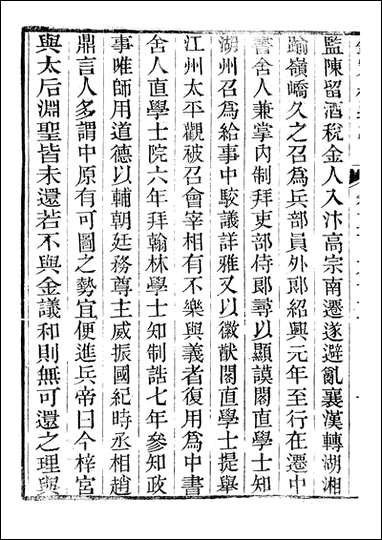 監陳留酒稅金人入汴高宗南遷遂避亂襄漢轉湖湘
踰嶺嶠久之召爲兵部員外郎紹興元年至行在遷中
書舍人兼掌內制拜吏部侍郎尋以顯謨閣直學士知
湖州召爲給事中駮議詳雅又以徽猷閣直學士提舉
江州太平觀被召會宰相有不樂與義者復用爲中書
舍人直學士院六年拜翰林學士知制誥七年參知政
事唯師用道德以輔朝廷務尊主威振國紀時丞相趙
鼎言人多謂中原有可圖之勢宜便進兵帝曰今梓宮
與太后淵聖皆未還若不與金議和則無可還之理與